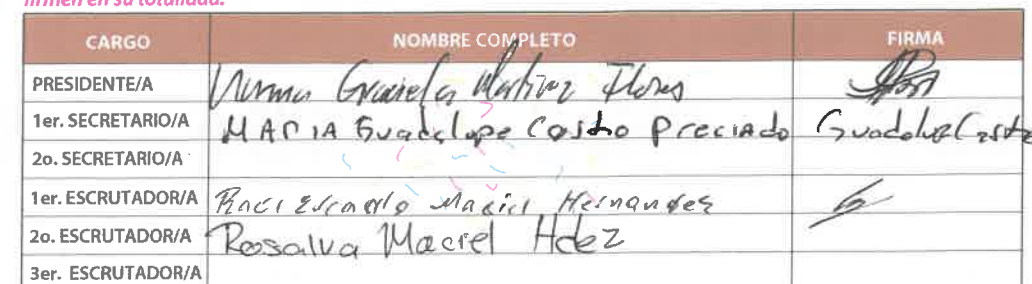 firmen en su totalidad.
CARGO NOMBRE COMPLETO FIRMA
PRESIDENTE/A Norma Graciela Martinez Flores
1er. SECRETARIO/A MARIA Guadalupe Castro Preciado Guadalupe Castro
2o. SECRETARIO/A
1er. ESCRUTADOR/A Maciel Hernandez
2o. ESCRUTADOR/A Rosalva Maciel Hdez
3er. ESCRUTADOR/A